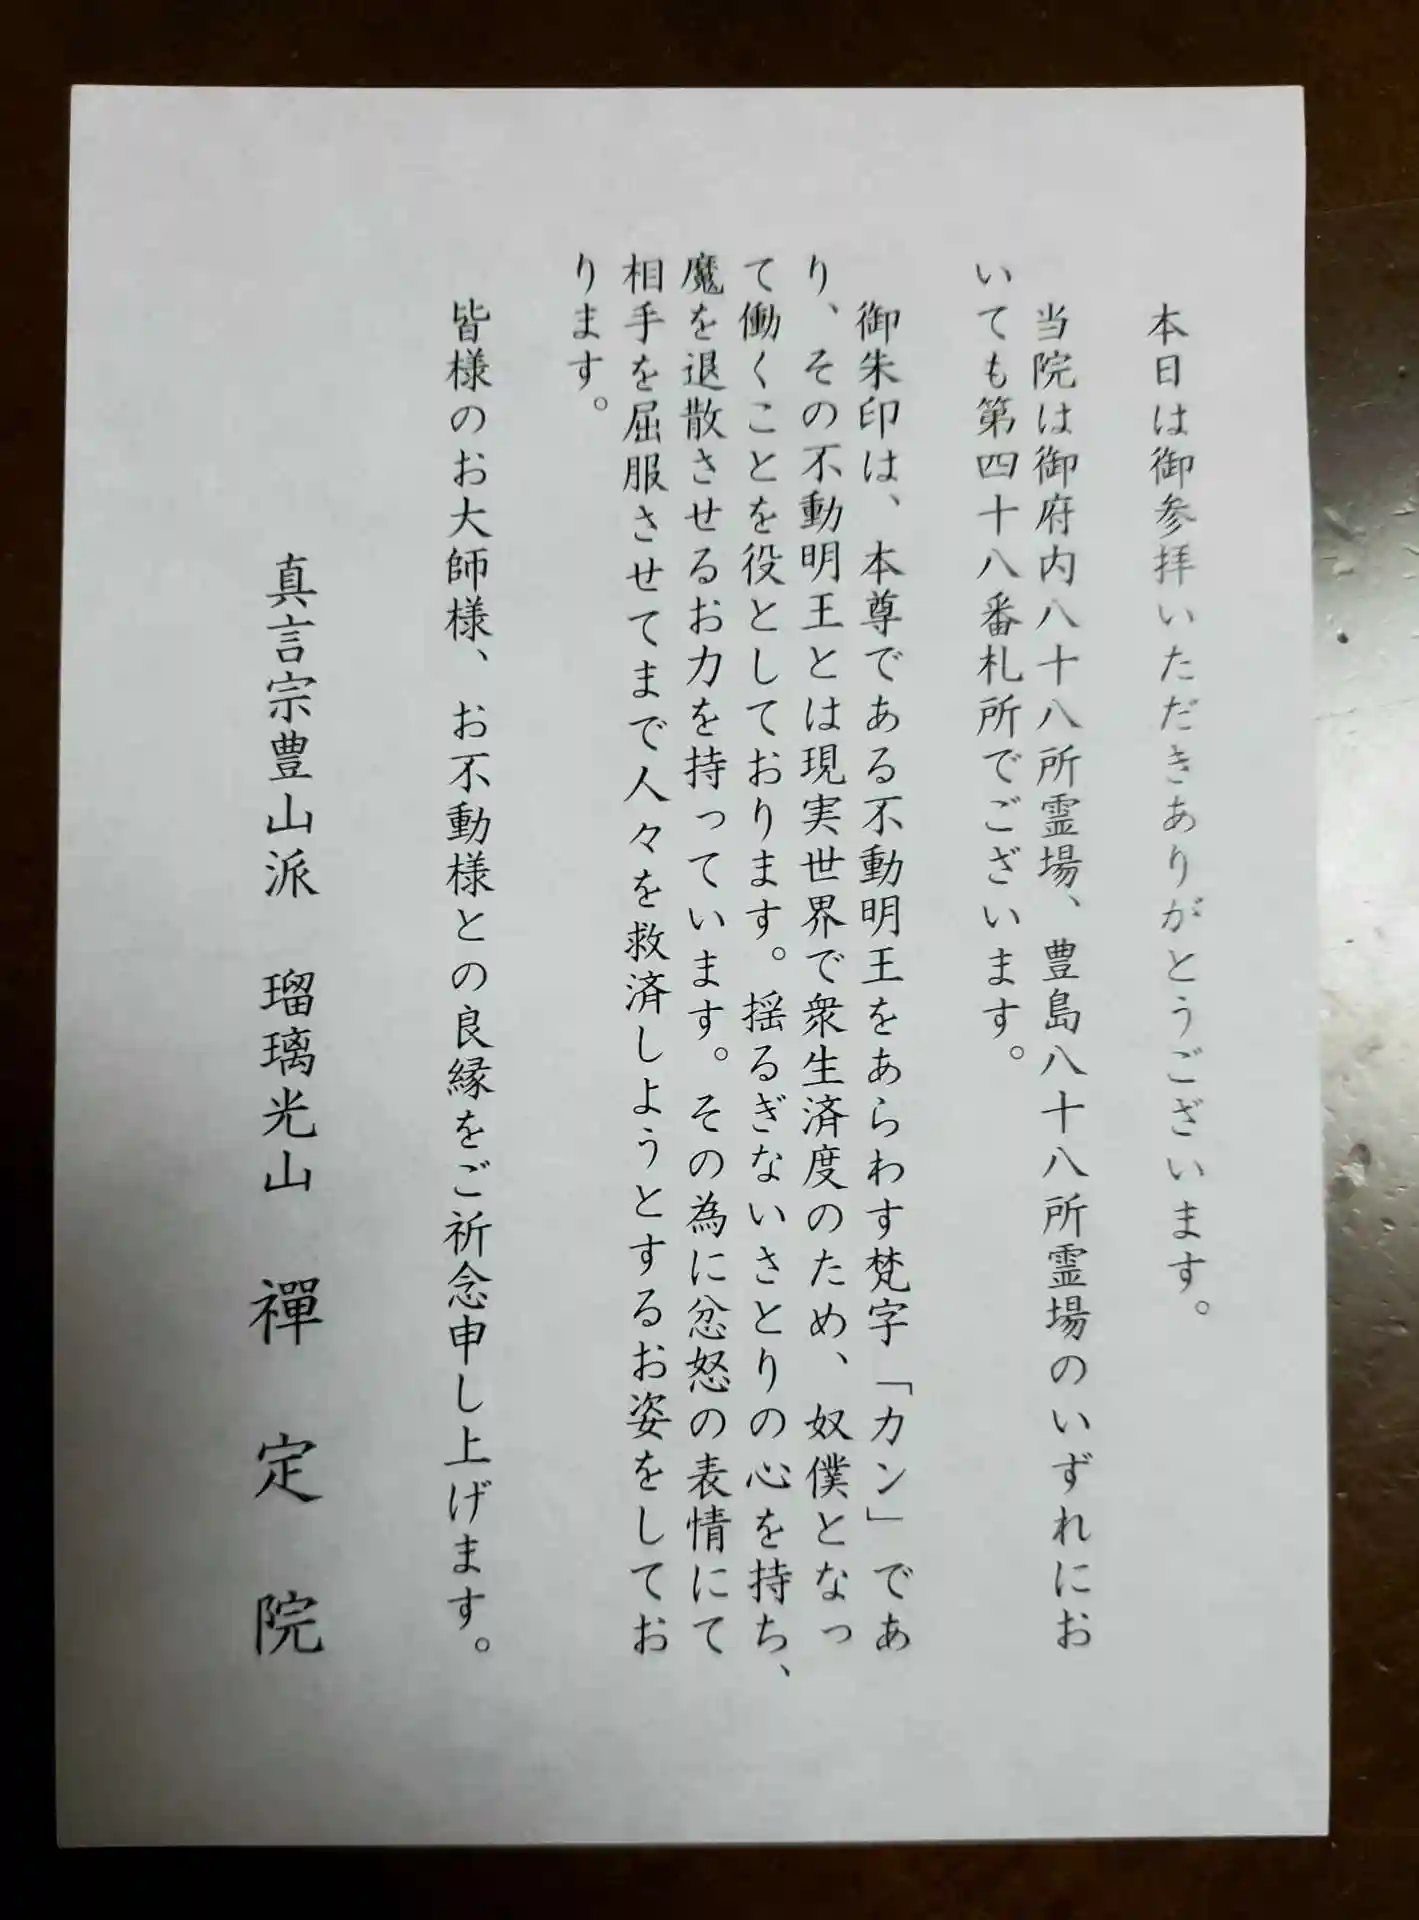 本日は御参拝いただきありがとうございます。
当院は御府内八十八所霊場、豊島八十八所霊場のいずれにお
いても第四十八番札所でございます。
御朱印は、本尊である不動明王をあらわす梵字「カン」であ
り、その不動明王とは現実世界で衆生済度のため、奴僕となっ
て働くことを役としております。揺るぎないさとりの心を持ち、
魔を退散させるお力を持っています。その為に忿怒の表情にて
相手を屈服させてまで人々を救済しようとするお姿をしてお
ります。
皆様のお大師様、お不動様との良縁をご祈念申し上げます。
真言宗豊山派 瑠璃光山 禪定院